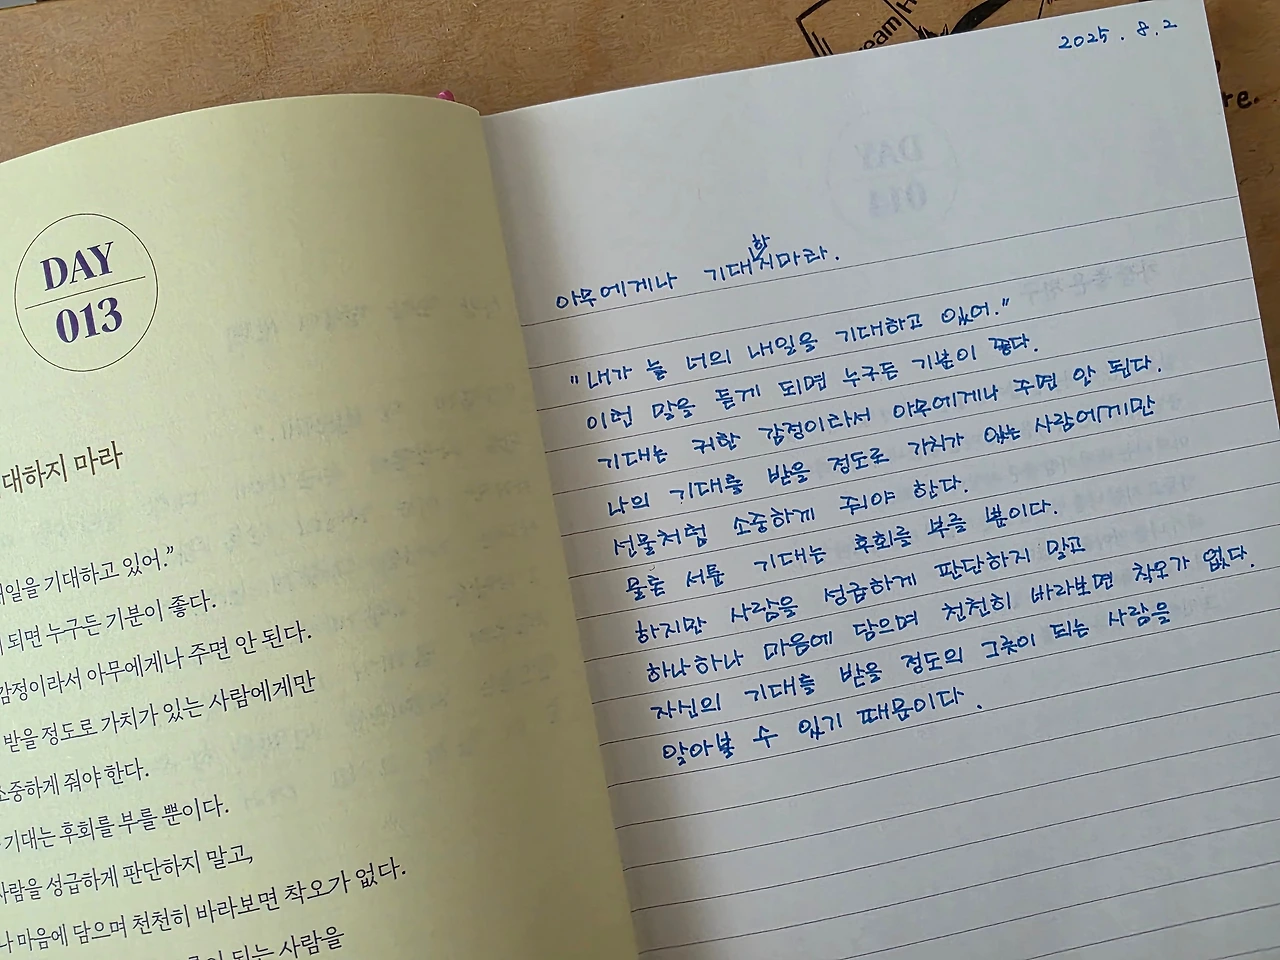 DAY
013
대하지 마라
일을 기대하고 있어.”
되면 누구든 기분이 좋다.
감정이라서 아무에게나 주면 안 된다.
받을 정도로 가치가 있는 사람에게만
소중하게 줘야 한다.
기대는 후회를 부를 뿐이다.
사람을 성급하게 판단하지 말고,
마음에 담으며 천천히 바라보면 착오가 없다.
되는 사람을
2025. 8. 2
아무에게나 기대하지마라.
"내가 늘 너의 내일을 기대하고 있어."
이런 말을 듣게 되면 누구든 기분이 좋다.
기대는 귀한 감정이라서 아무에게나 주면 안 된다.
나의 기대를 받을 정도로 가치가 있는 사람에게만
선물처럼 소중하게 줘야 한다.
물론 서툰 기대는 후회를 부를 뿐이다.
하지만 사람을 성급하게 판단하지 말고
하나하나 마음에 담으며 천천히 바라보면 착오가 없다.
자신의 기대를 받을 정도의 그릇이 되는 사람을
알아볼 수 있기 때문이다.